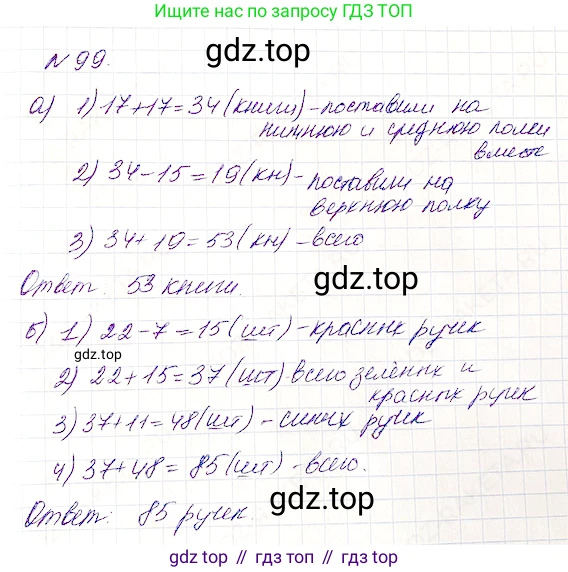 ещё больше готовых домашних заданий на gdz.top
найди по запросу ГДЗ ТОП
№99.
gdz.top
а) 1) 17+17=34 (книги) - поставили на
нижнюю и среднюю полки
вместе
2) 34-15=19 (кн) - поставили на
верхнюю полку
3) 34+19=53 (кн) - всего
Ответ: 53 книги.
gdz.top
б) 1) 22-7=15 (шт) - красных ручек
gdz.top
2) 22+15=37 (шт) всего зелёных и
красных ручек
3) 37+11=48 (шт) - синих ручек
4) 37+48=85 (шт) - всего.
gdz.top
Ответ: 85 ручек.
гдз.top // гдз топ // gdz.top